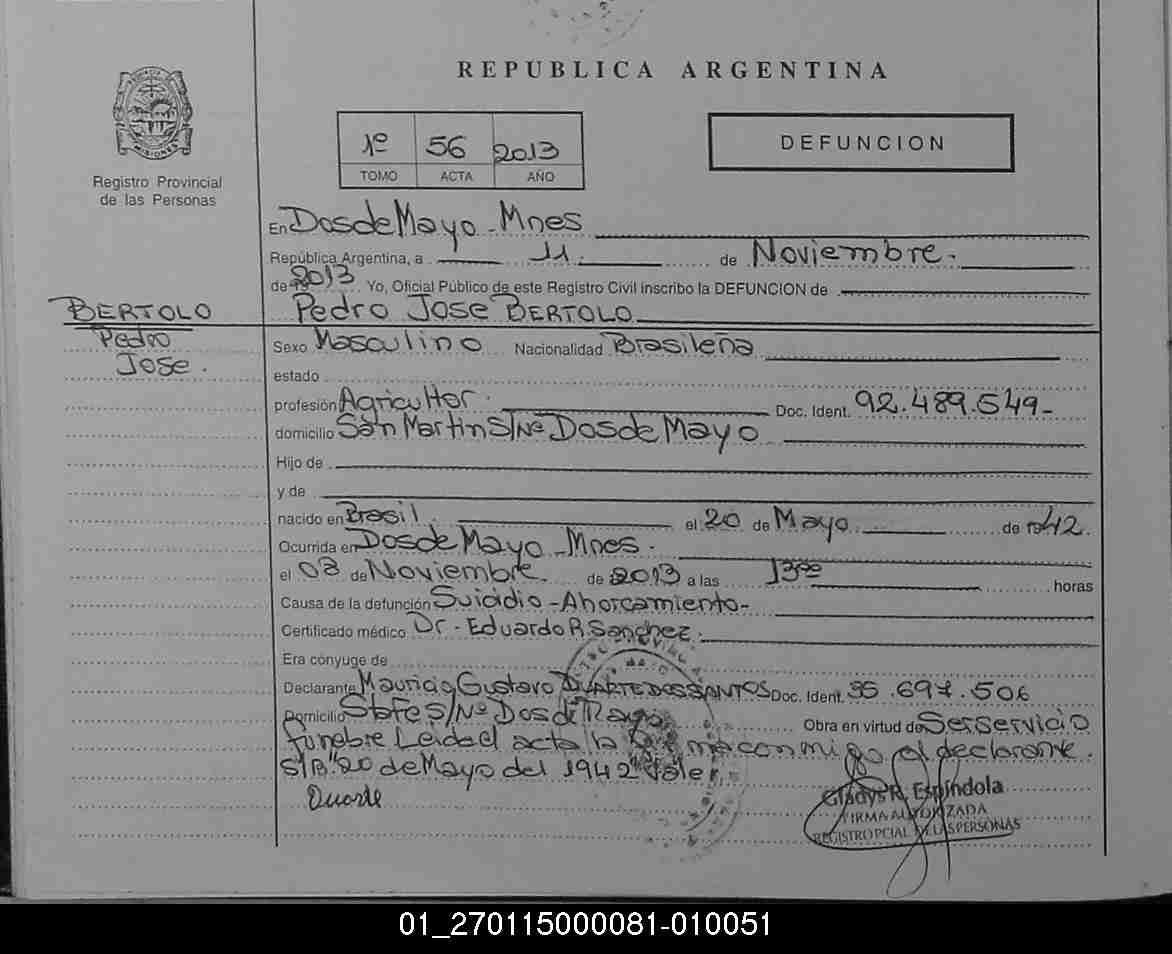 REPUBLICA ARGENTINA
MISIONES
Registro Provincial
de las Personas
1º 56 2013
TOMO ACTA AÑO
DEFUNCION
En Dos de Mayo - Mnes
República Argentina, a 11 de Noviembre.
de 2013 Yo, Oficial Público de este Registro Civil inscribo la DEFUNCION de
Pedro Jose BERTOLO
BERTOLO
Pedro
Jose.
Sexo Masculino Nacionalidad Brasileña
estado
profesión Agricultor. Doc. Ident. 92.489.549-
domicilio San Martin S/Nº Dos de Mayo
Hijo de
y de
nacido en Brasil. el 20 de Mayo de 1942.
Ocurrida en Dos de Mayo - Mnes.
el 08 de Noviembre. de 2013 a las 13ºº horas
Causa de la defunción Suicidio - Ahorcamiento-
Certificado médico Dr. Eduardo R. Sanchez.
Era cónyuge de
Declarante Mauricio Gustavo DUARTE DOS SANTOS Doc. Ident. 35.697.506
Domicilio Sta Fe S/Nº Dos de Mayo Obra en virtud de Ser servicio
funebre Leida el acta la firma conmigo el declarante.
S/B "20 de Mayo del 1942" Vale.
Duarte
Gladys R. Espíndola
FIRMA AUTORIZADA
REGISTRO PCIAL DE LAS PERSONAS
01_270115000081-010051